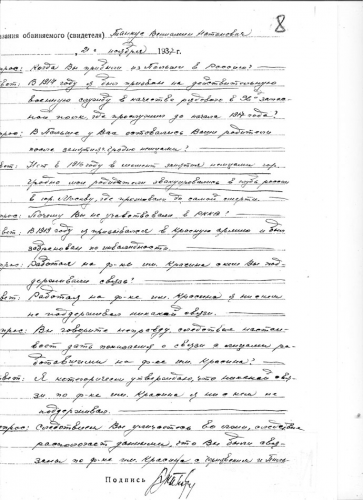 8
зания обвиняемого (свидетеля) Вениамин Натанович
"21" ноября 1937 г.
прос: Когда Вы прибыли из Польши в Россию?
вет: В 1914 году я был призван на действительную
военную службу в качестве рядового в запас-
ной полк, где прослужил до начала 1917 года?
прос: В Польше у Вас оставались Ваши родители
после занятия Гродно немцами?
вет: Нет в году в момент занятия немцами гор.
Гродно мои родители эвакуировались в
в гор. Москву, где проживали до самой смерти.
прос: Почему Вы не участвовали в РККА?
вет: В 1919 году я призывался в Красную армию и был
забракован по инвалидности.
прос: Работая на ф-ке им. Красина с кем Вы под-
держивали связь?
вет: Работая на ф-ке им. Красина я ни с кем
не поддерживал никакой связи.
прос: Вы говорите неправду, следствие настаи-
вает дать показания о связи с лицами ра-
ботавшими на ф-ке им. Красина?
вет: Я категорически утверждаю, что никакой свя-
зи по ф-ке им. Красина я ни с кем не
поддерживал.
прос: Следствием Вы уличаетесь следствие
располагает данными, что Вы были свя-
заны по ф-ке им. Красина с и
Подпись